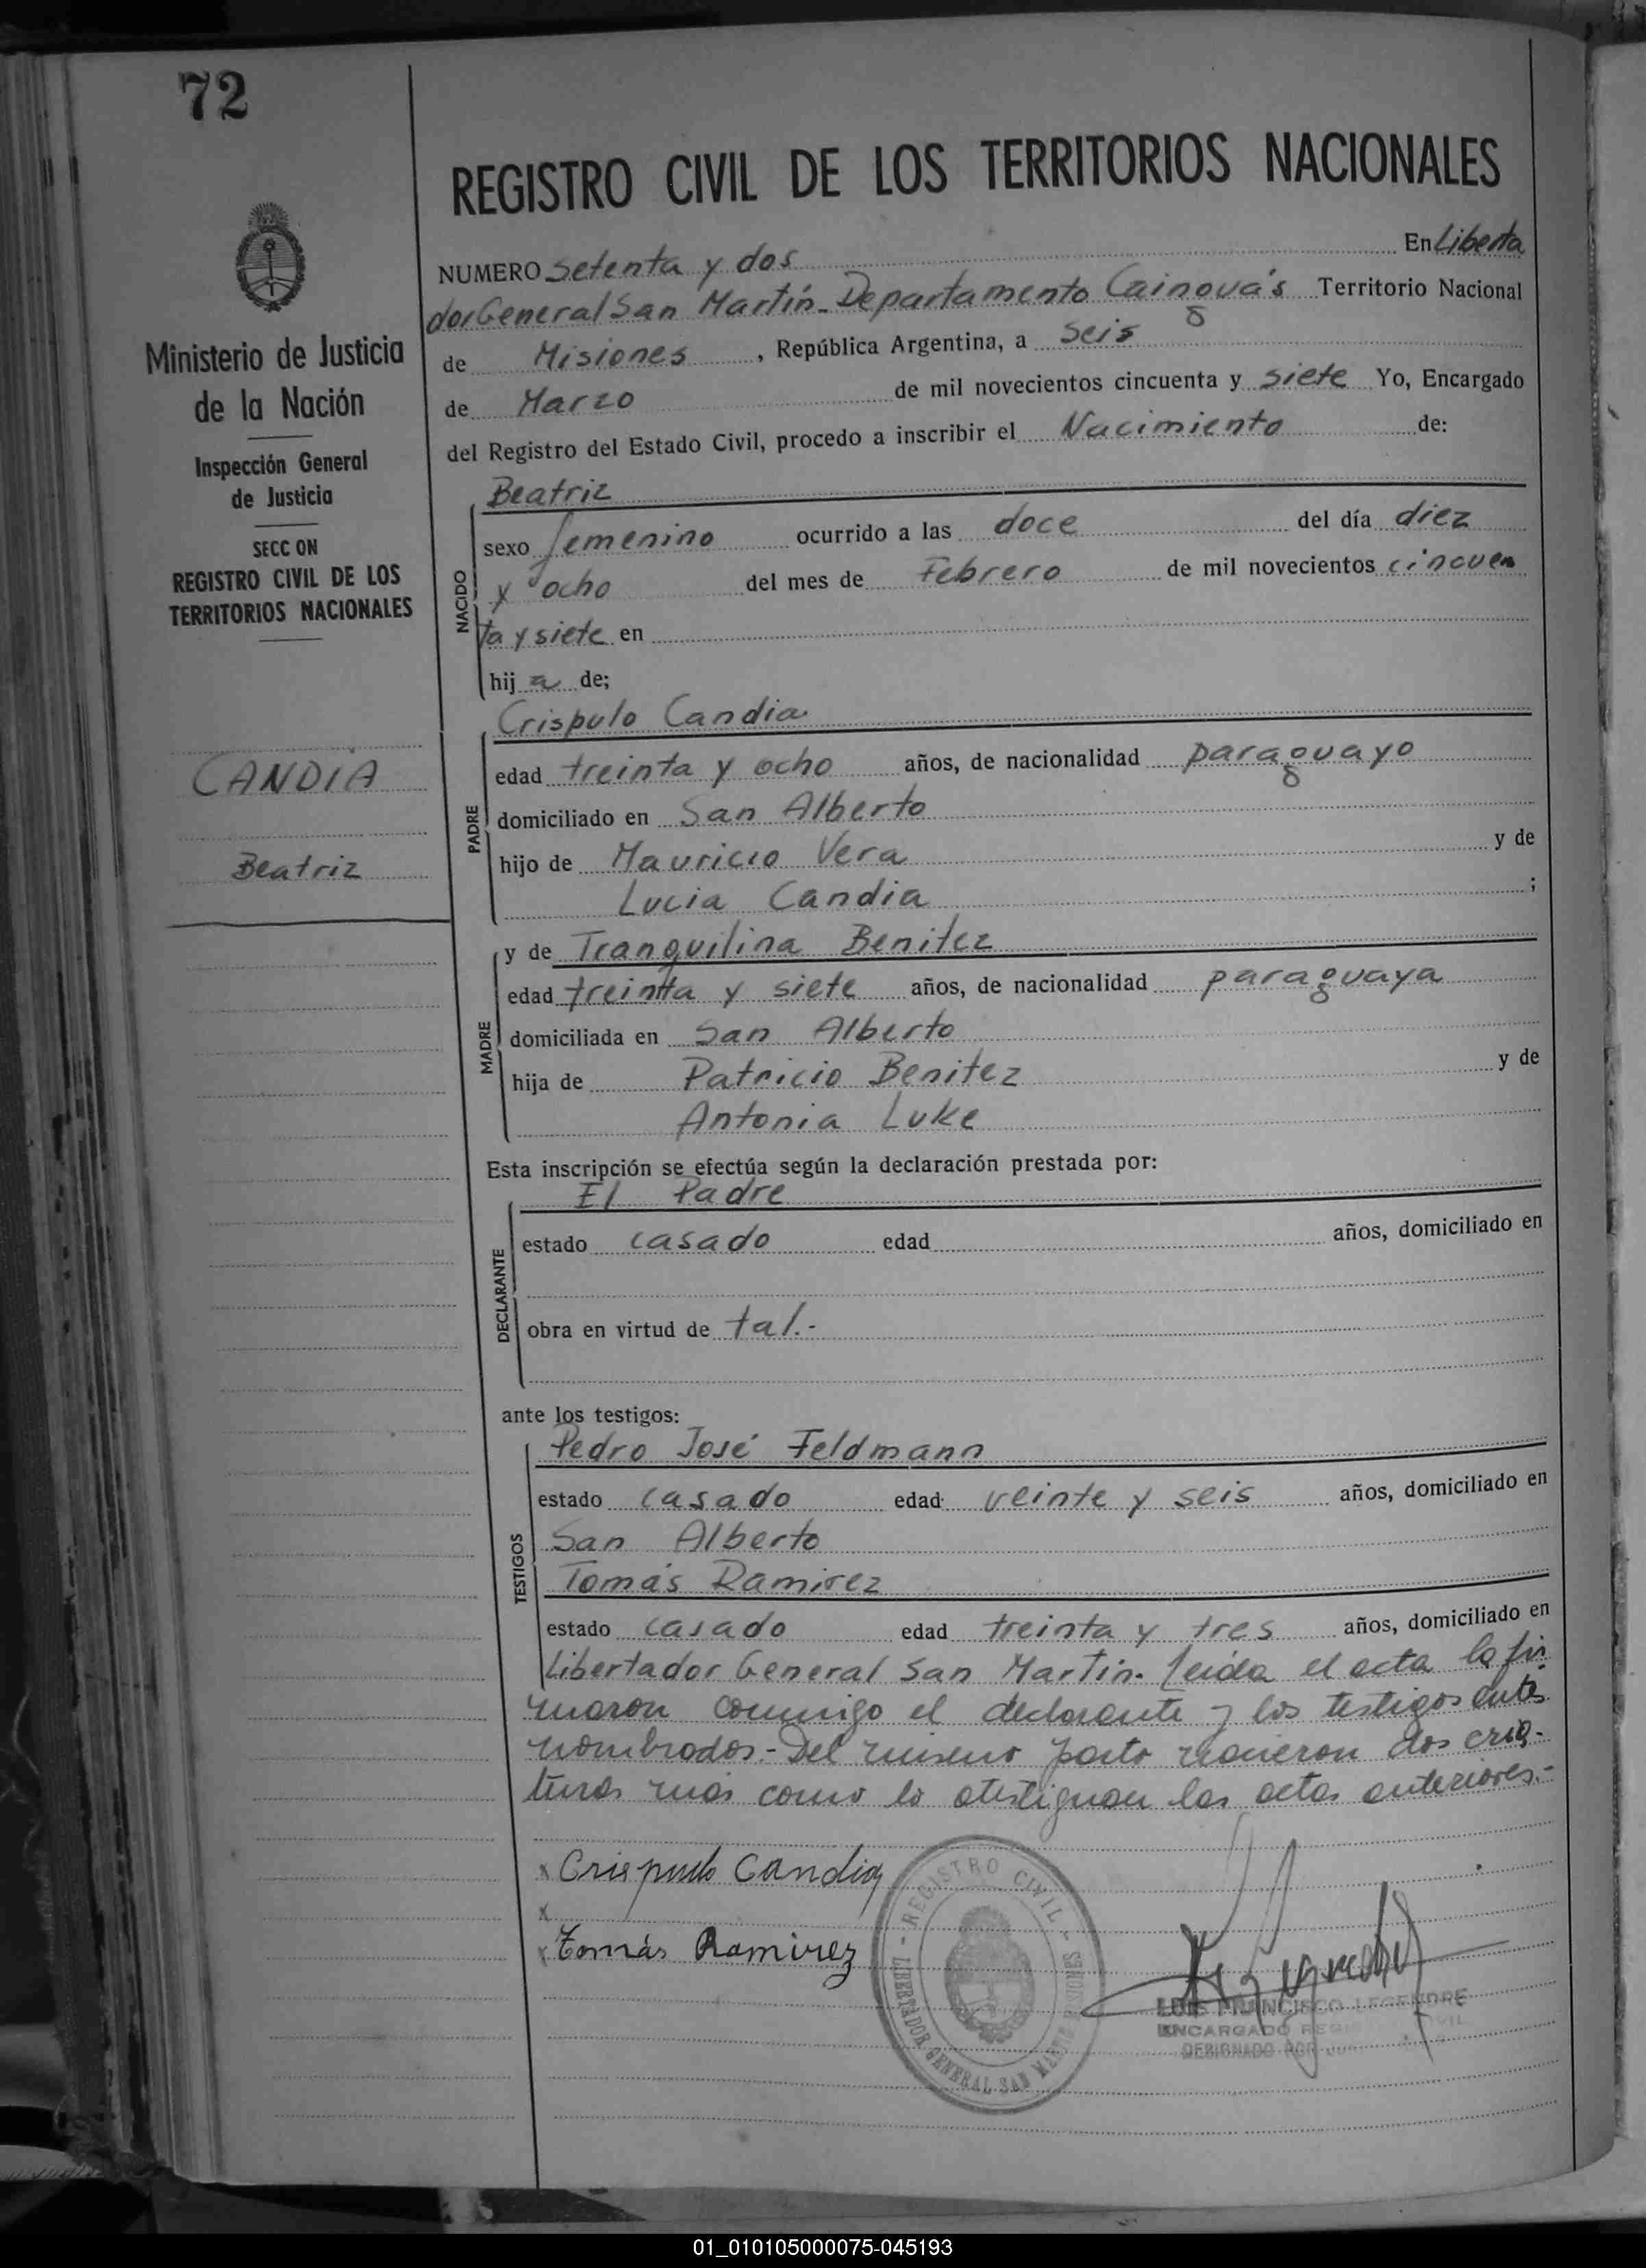 72
REGISTRO CIVIL DE LOS TERRITORIOS NACIONALES
Ministerio de Justicia
de la Nación
Inspección General
de Justicia
SECC ON
REGISTRO CIVIL DE LOS
TERRITORIOS NACIONALES
CANDIA
Beatriz
NUMERO setenta y dos En Liberta
dor General San Martín - Departamento Cainguás Territorio Nacional
de Misiones, República Argentina, a seis
de Marzo de mil novecientos cincuenta y siete Yo, Encargado
del Registro del Estado Civil, procedo a inscribir el Nacimiento de:
NACIDO
Beatriz
sexo femenino ocurrido a las doce del día diez
y ocho del mes de Febrero de mil novecientos cincuen
ta y siete en
hija de;
PADRE
Crispulo Candia
edad treinta y ocho años, de nacionalidad paraguayo
domiciliado en San Alberto
hijo de Mauricio Vera y de
Lucia Candia ;
MADRE
y de Tranquilina Benitez
edad treinta y siete años, de nacionalidad paraguaya
domiciliada en San Alberto
hija de Patricio Benitez y de
Antonia Luke
Esta inscripción se efectúa según la declaración prestada por:
DECLARANTE
El Padre
estado casado edad años, domiciliado en
obra en virtud de tal.-
ante los testigos:
TESTIGOS
Pedro José Feldmann
estado casado edad veinte y seis años, domiciliado en
San Alberto
Tomás Ramirez
estado casado edad treinta y tres años, domiciliado en
Libertador General San Martín. Leída el acta la fir
maron conmigo el declarante y los testigos antes
nombrados.- Del mismo parto nacieron dos cria-
turas más como lo atestiguan las actas anteriores.-
x Crispulo Candia
x
x Tomás Ramirez
- REGISTRO CIVIL -
LIBERTADOR GENERAL SAN MARTIN MISIONES
LUIS FRANCISCO LEGENDRE
ENCARGADO REGISTRO CIVIL
DESIGNADO POR
01_010105000075-045193